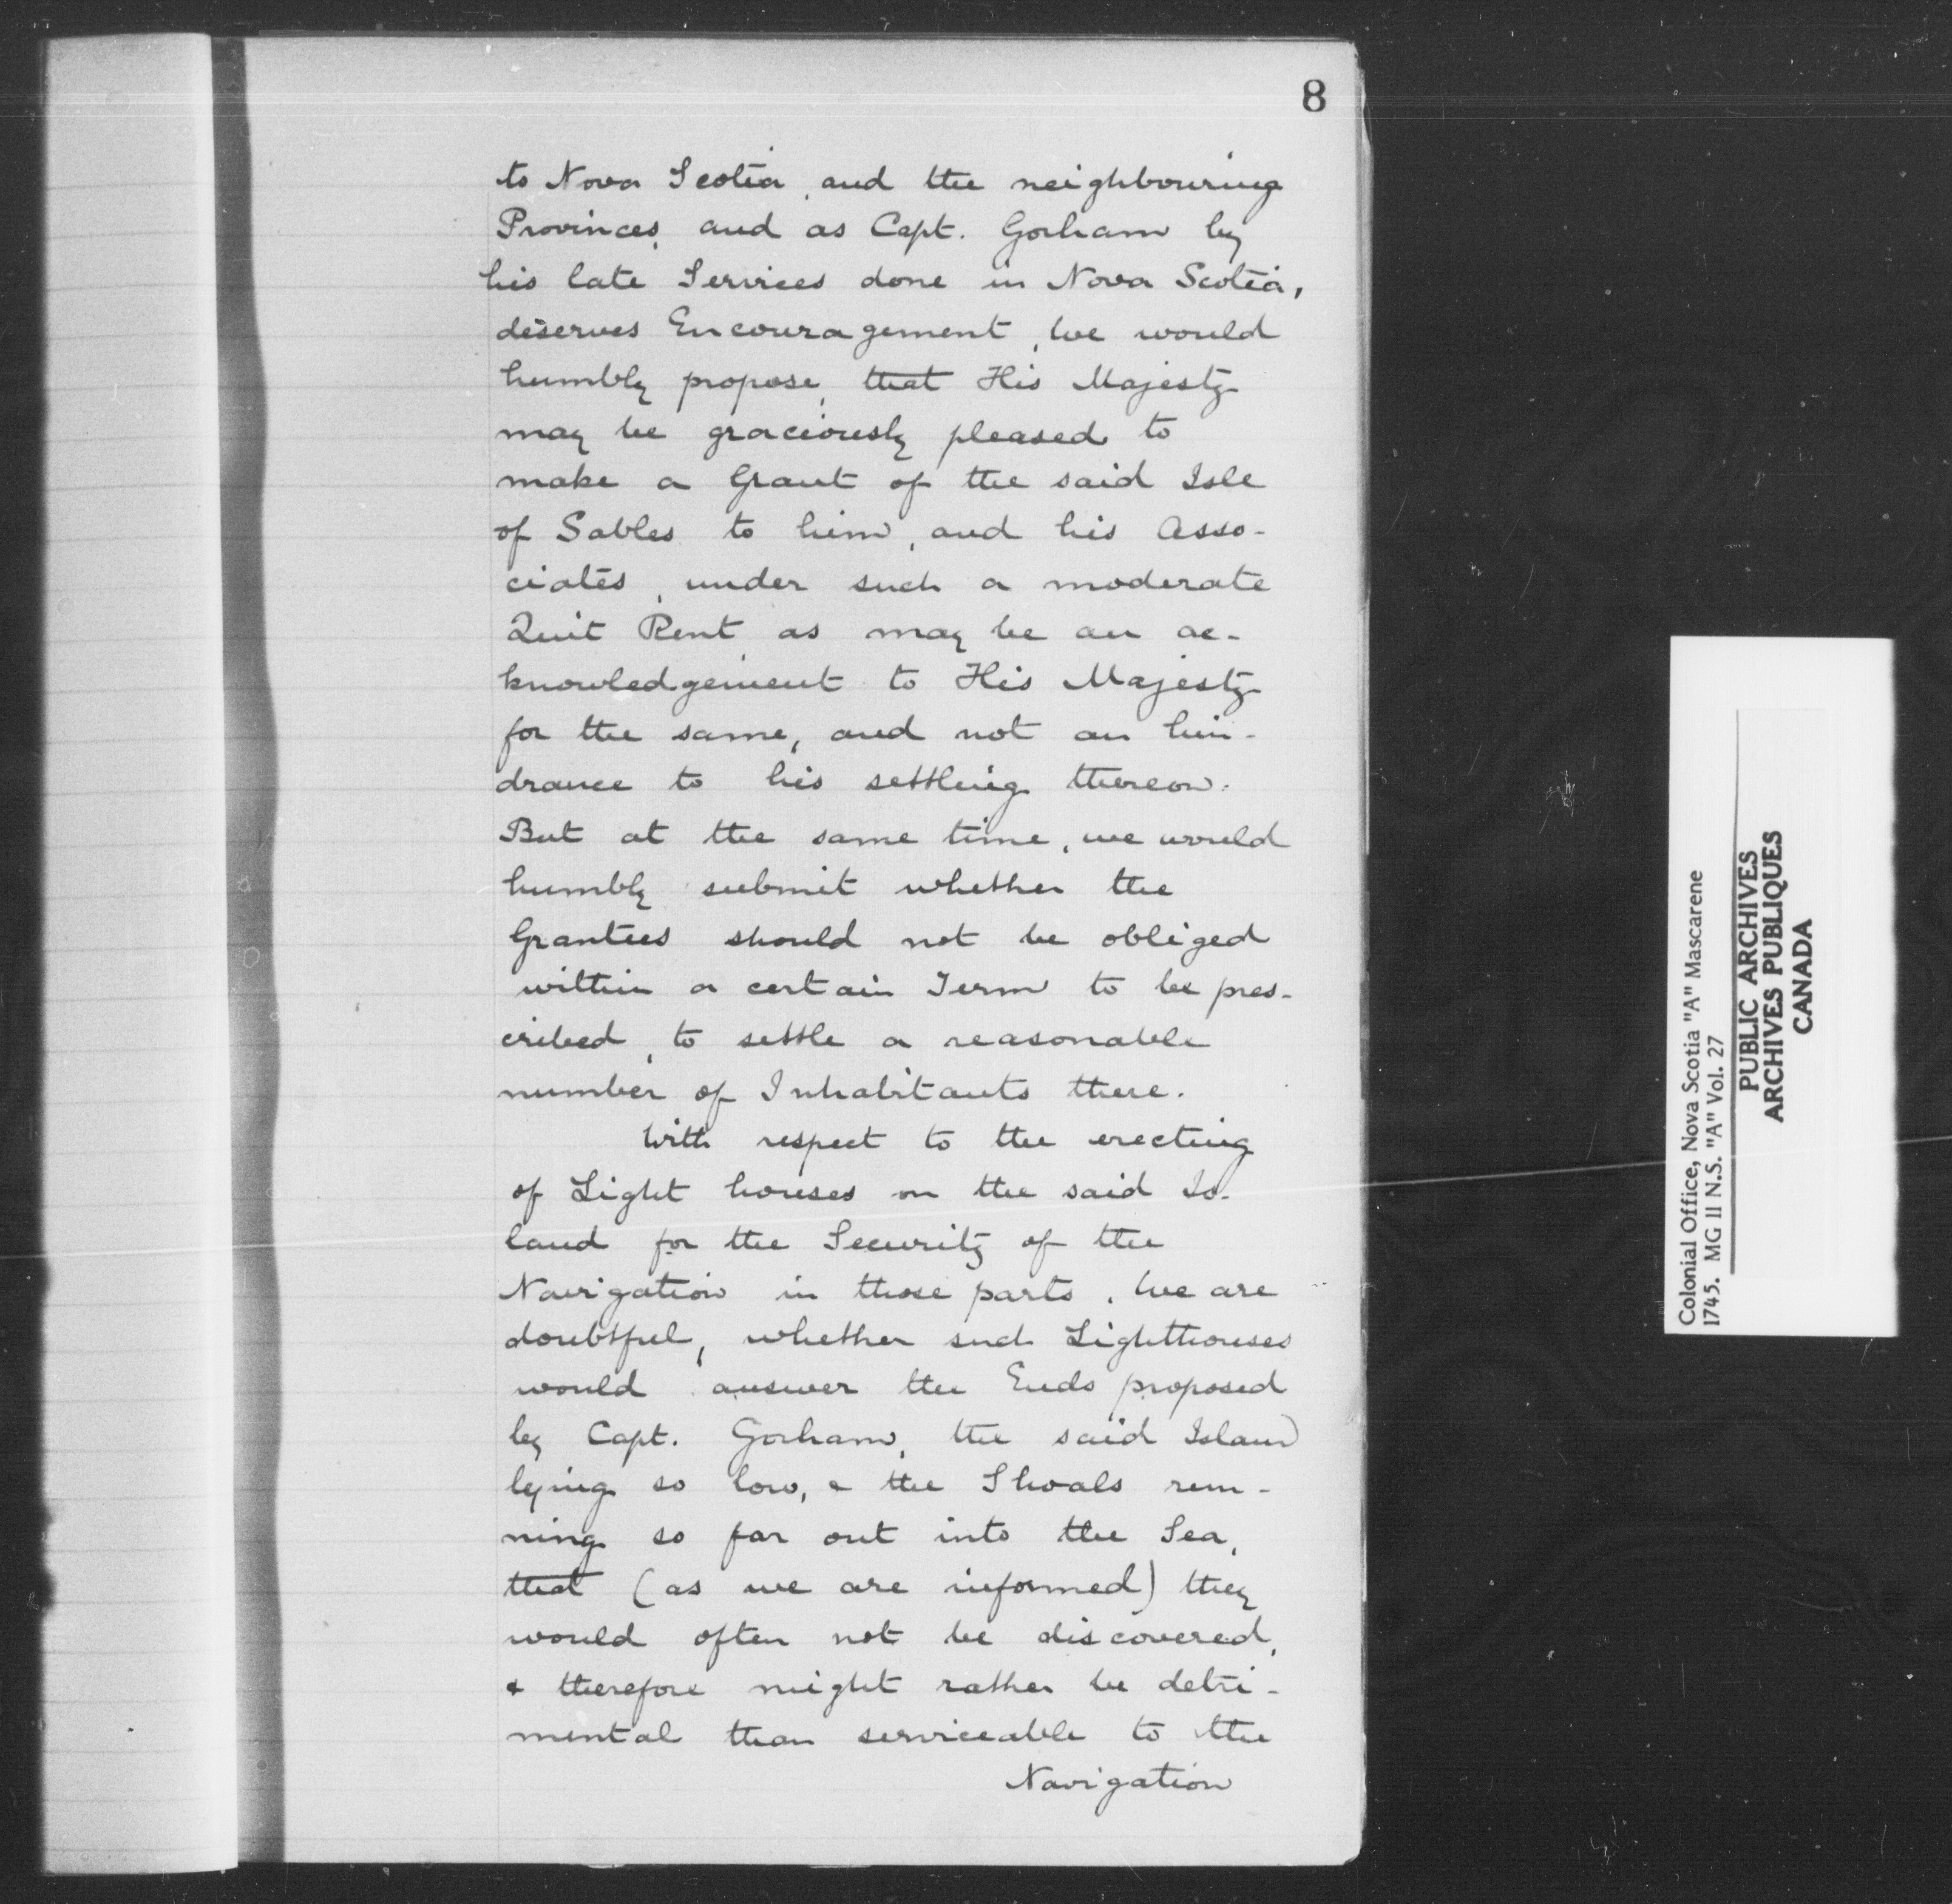 8
to Nova Scotia, and the neighbouring
Provinces, and as Capt. Gorham by
his late Services done in Nova Scotia,
deserves Encouragement, We would
humbly propose, that His Majesty
may be graciously pleased to
make a Grant of the said Isle
of Sables to him, and his Asso-
ciates, under such a moderate
Quit Rent, as may be an ac-
knowledgement to His Majesty
for the same, and not an hin-
drance to his settling thereon.
But at the same time, we would
humbly submit whether the
Grantees should not be obliged
within a certain Term to be pres-
cribed, to settle a reasonable
number of Inhabitants there.
With respect to the erecting
of Light houses on the said Is-
land for the Security of the
Navigation in those parts, We are
doubtful, whether such Lighthouses
would answer the Ends proposed
by Capt. Gorham, the said Island
lying so low, & the Shoals run-
ning so far out into the Sea,
that (as we are informed) they
would often not be discovered,
& therefore might rather be detri-
mental than serviceable to the
Navigation
Colonial Office, Nova Scotia "A" Mascarene
1745. MG 11 N.S. "A" Vol. 27
PUBLIC ARCHIVES
ARCHIVES PUBLIQUES
CANADA